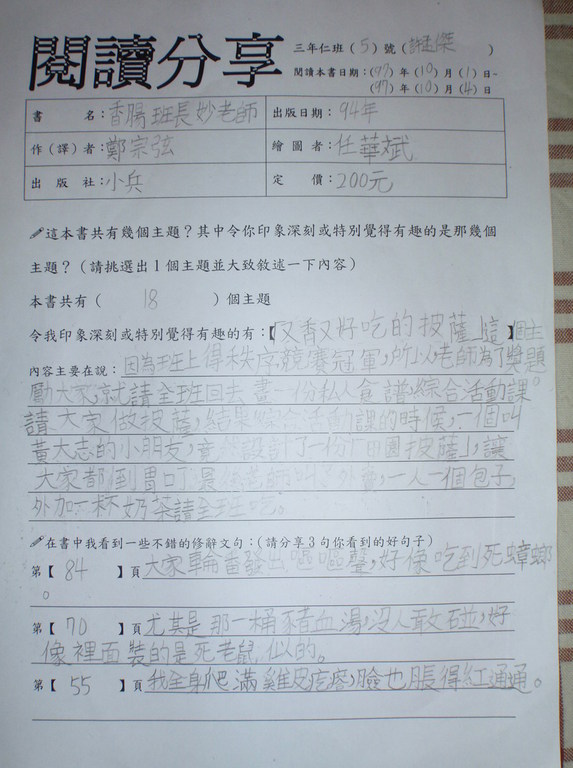 閱讀分享
三年仁班(5)號(謝傑)
閱讀本書日期:(97)年(10)月(1)日~
(97)年(10)月(4)日
書名:香腸班長妙老師 出版日期:94年
作(譯)者:鄭宗弦 繪圖者:任華斌
出版社:小兵 定價:200元
這本書共有幾個主題?其中令你印象深刻或特別覺得有趣的是那幾個
主題?(請挑選出1個主題並大致敘述一下內容)
本書共有(18)個主題
令我印象深刻或特別覺得有趣的有:【「又香又好吃的披薩」這】個主
內容主要在說:因為班上得秩序競賽冠軍,所以老師為了獎題。
勵大家,就請全班回去畫一份私人食譜,綜合活動課
請大家做披薩,結果綜合活動課的時候,一個叫
黃大志的小朋友,竟然設計了一份「田園披薩」,讓
大家都倒胃口,最後老師叫了外賣,一人一個包子,
外加一杯奶茶請全班吃。
在書中我看到一些不錯的修辭文句:(請分享3句你看到的好句子)
第【84】頁大家輪番發出嘔嘔聲,好像吃到死蟑螂
。
第【70】頁尤其是那一桶豬血湯,沒人敢碰,好
像裡面裝的是死老鼠似的。
第【55】頁我全身爬滿雞皮疙瘩,臉也脹得紅通通。